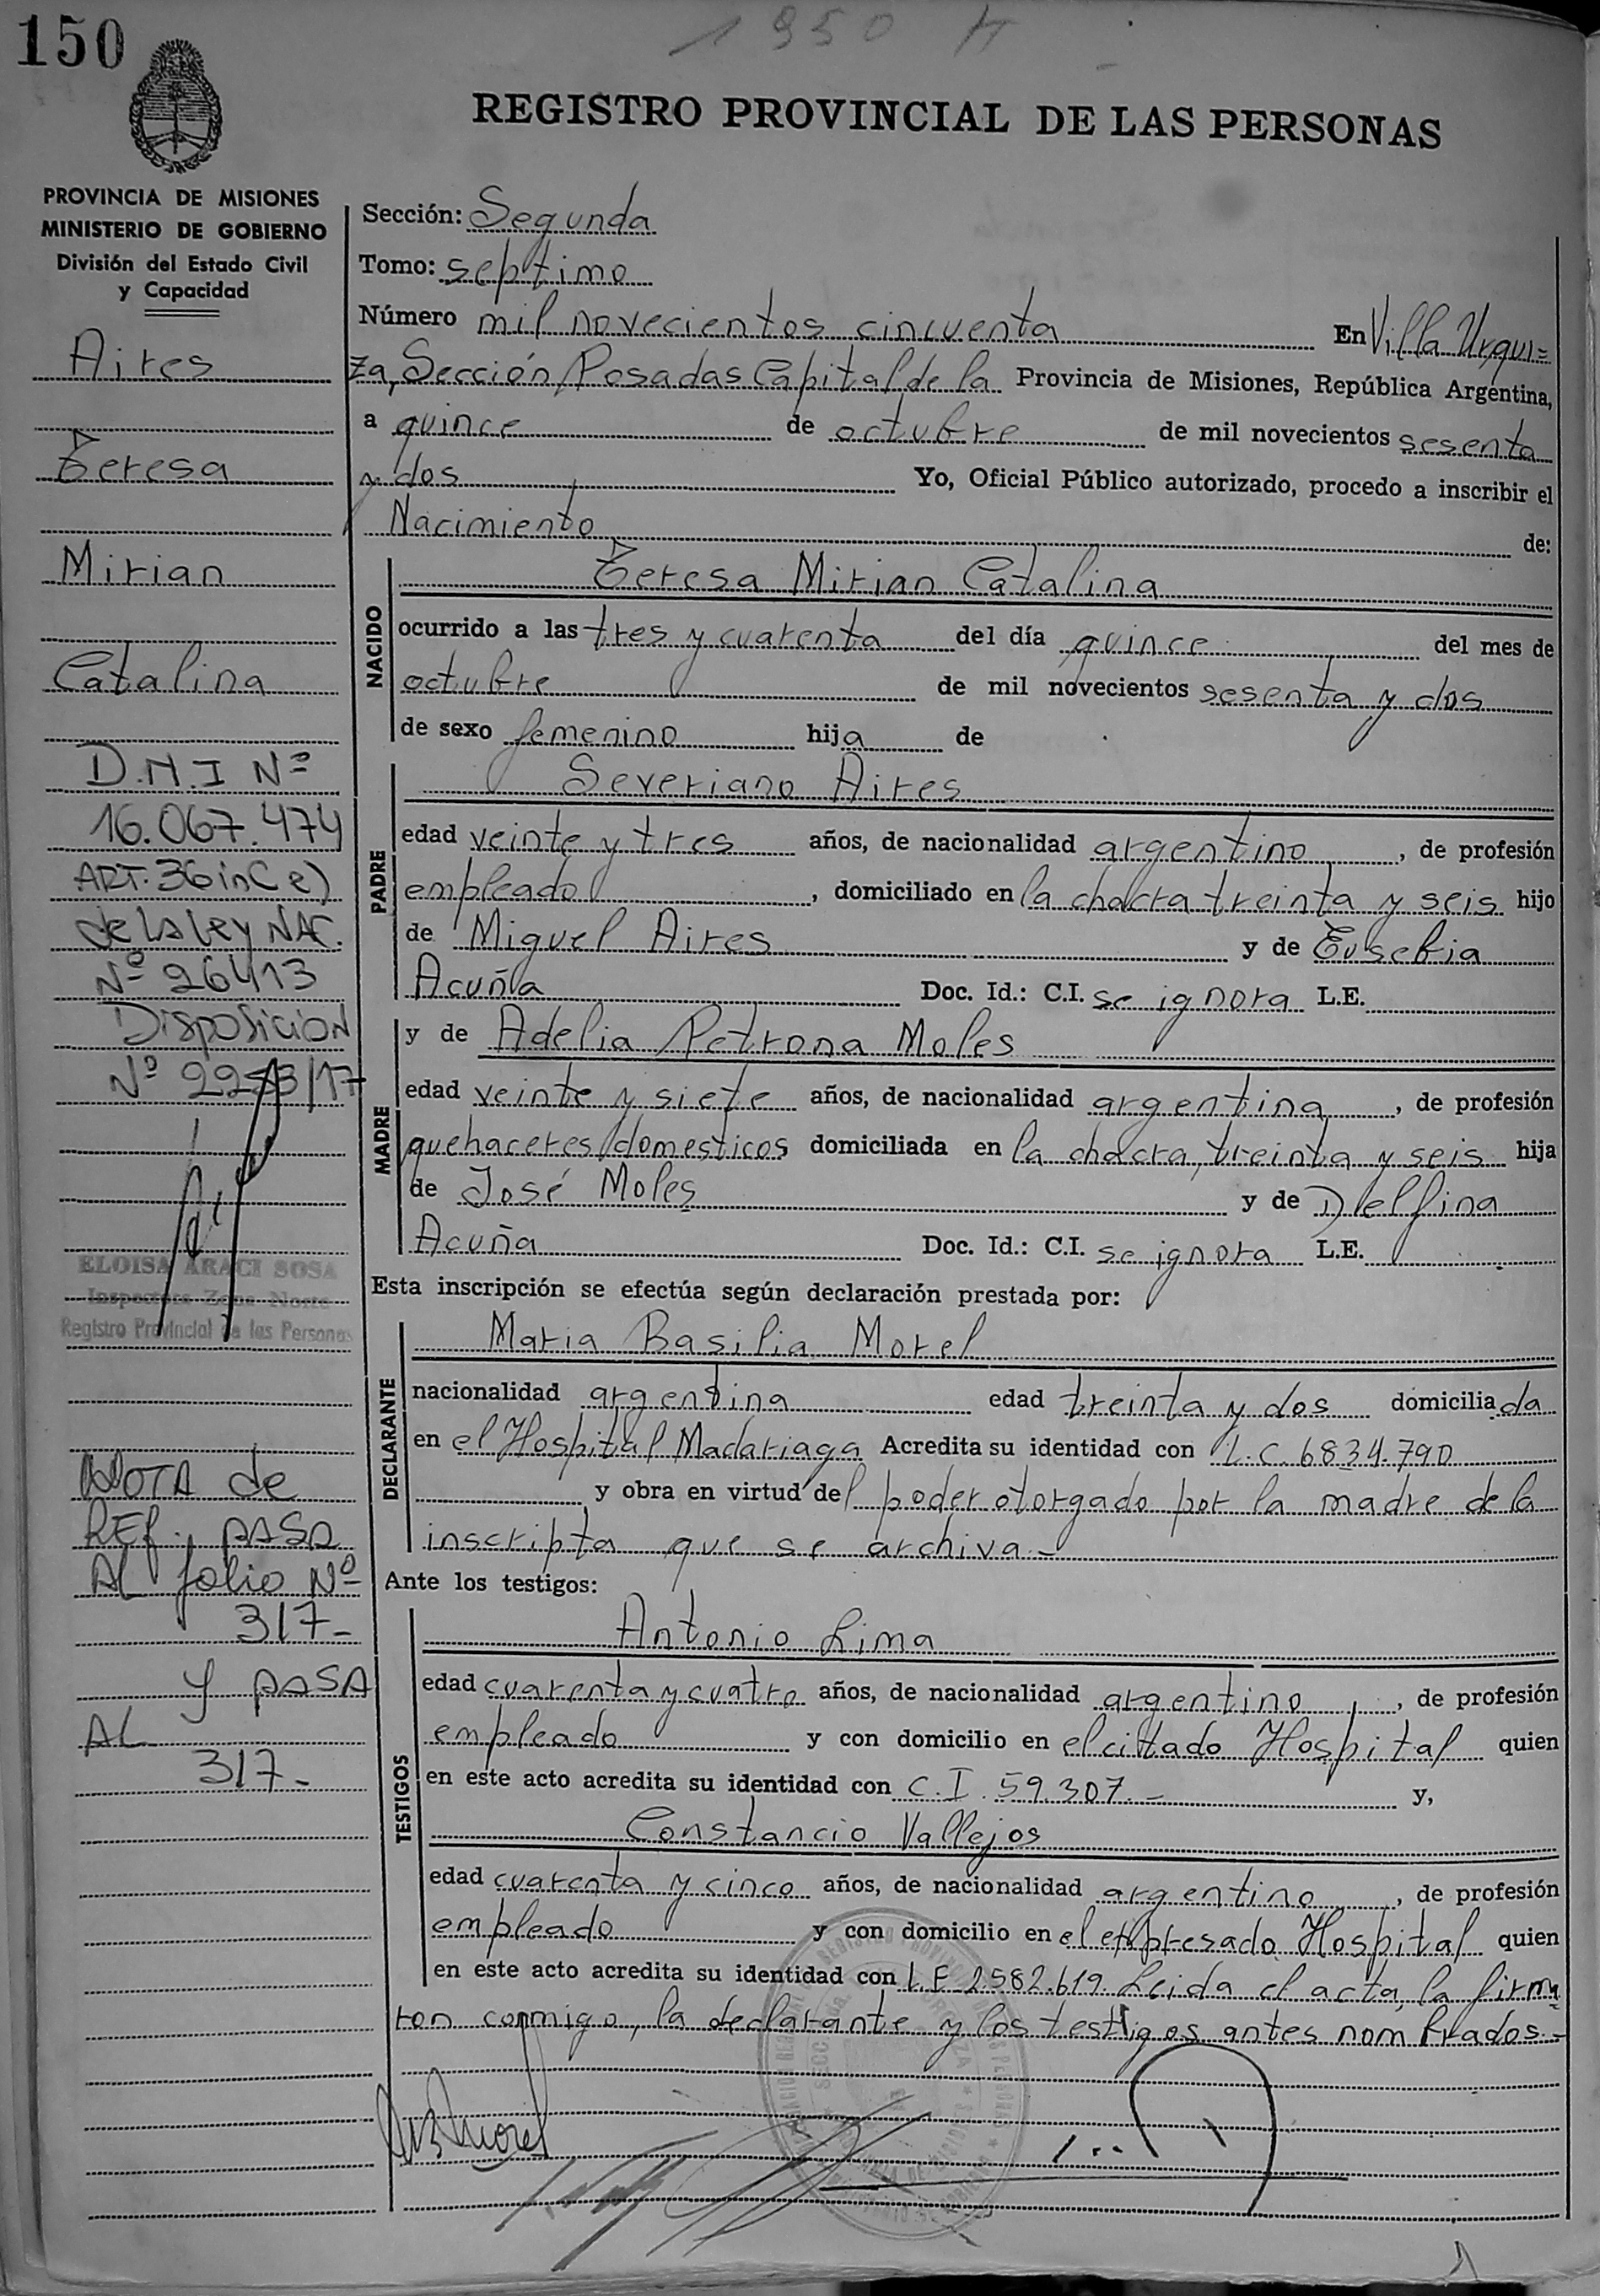 150
1950 H
REGISTRO PROVINCIAL DE LAS PERSONAS
PROVINCIA DE MISIONES
MINISTERIO DE GOBIERNO
División del Estado Civil
y Capacidad
Aires
Teresa
Mirian
Catalina
D.N.I Nº
16.067.474
ART. 36 inC e)
de la ley NAC.
Nº 26413
Disposicion
Nº /17
ELOISA ARACI SOSA
Inspectora Zona Norte
Registro Provincial de las Personas
NOTA de
REF. PASA
AL folio Nº
317-
y PASA
AL
317-
Sección: Segunda
Tomo: septimo
Número mil novecientos cincuenta En Villa Urqui=
za, Sección Posadas Capital de la Provincia de Misiones, República Argentina,
a quince de octubre de mil novecientos sesenta
y dos Yo, Oficial Público autorizado, procedo a inscribir el
Nacimiento de:
NACIDO
Teresa Mirian Catalina
ocurrido a las tres y cuarenta del día quince del mes de
octubre de mil novecientos sesenta y dos
de sexo femenino hija de
PADRE
Severiano Aires
edad veinte y tres años, de nacionalidad argentino, de profesión
empleado, domiciliado en la chacra treinta y seis hijo
de Miguel Aires y de Eusebia
Acuña Doc. Id.: C.I. se ignora L.E.
MADRE
y de Adelia Petrona Moles
edad veinte y siete años, de nacionalidad argentina, de profesión
quehaceres domesticos domiciliada en la chacra, treinta y seis hija
de José Moles y de Delfina
Acuña Doc. Id.: C.I. se ignora L.E.
Esta inscripción se efectúa según declaración prestada por:
DECLARANTE
Maria Basilia Morel
nacionalidad argentina edad treinta y dos domiciliada
en el Hospital Madariaga Acredita su identidad con L.C. 6834.790
y obra en virtud del poder otorgado por la madre de la
inscripta que se archiva.-
Ante los testigos:
TESTIGOS
Antonio Lima
edad cuarenta y cuatro años, de nacionalidad argentino, de profesión
empleado y con domicilio en el citado Hospital quien
en este acto acredita su identidad con C.I. 59.307.- y,
Constancio Vallejos
edad cuarenta y cinco años, de nacionalidad argentino, de profesión
empleado y con domicilio en el expresado Hospital quien
en este acto acredita su identidad con L.E 2.582.619. Leida el acta, la firma
ron conmigo, la declarante y los testigos antes nombrados.-